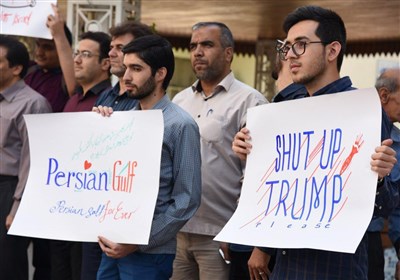 Persian Gulf
Persian Gulf for Ever
SHUT UP
TRUMP
Please